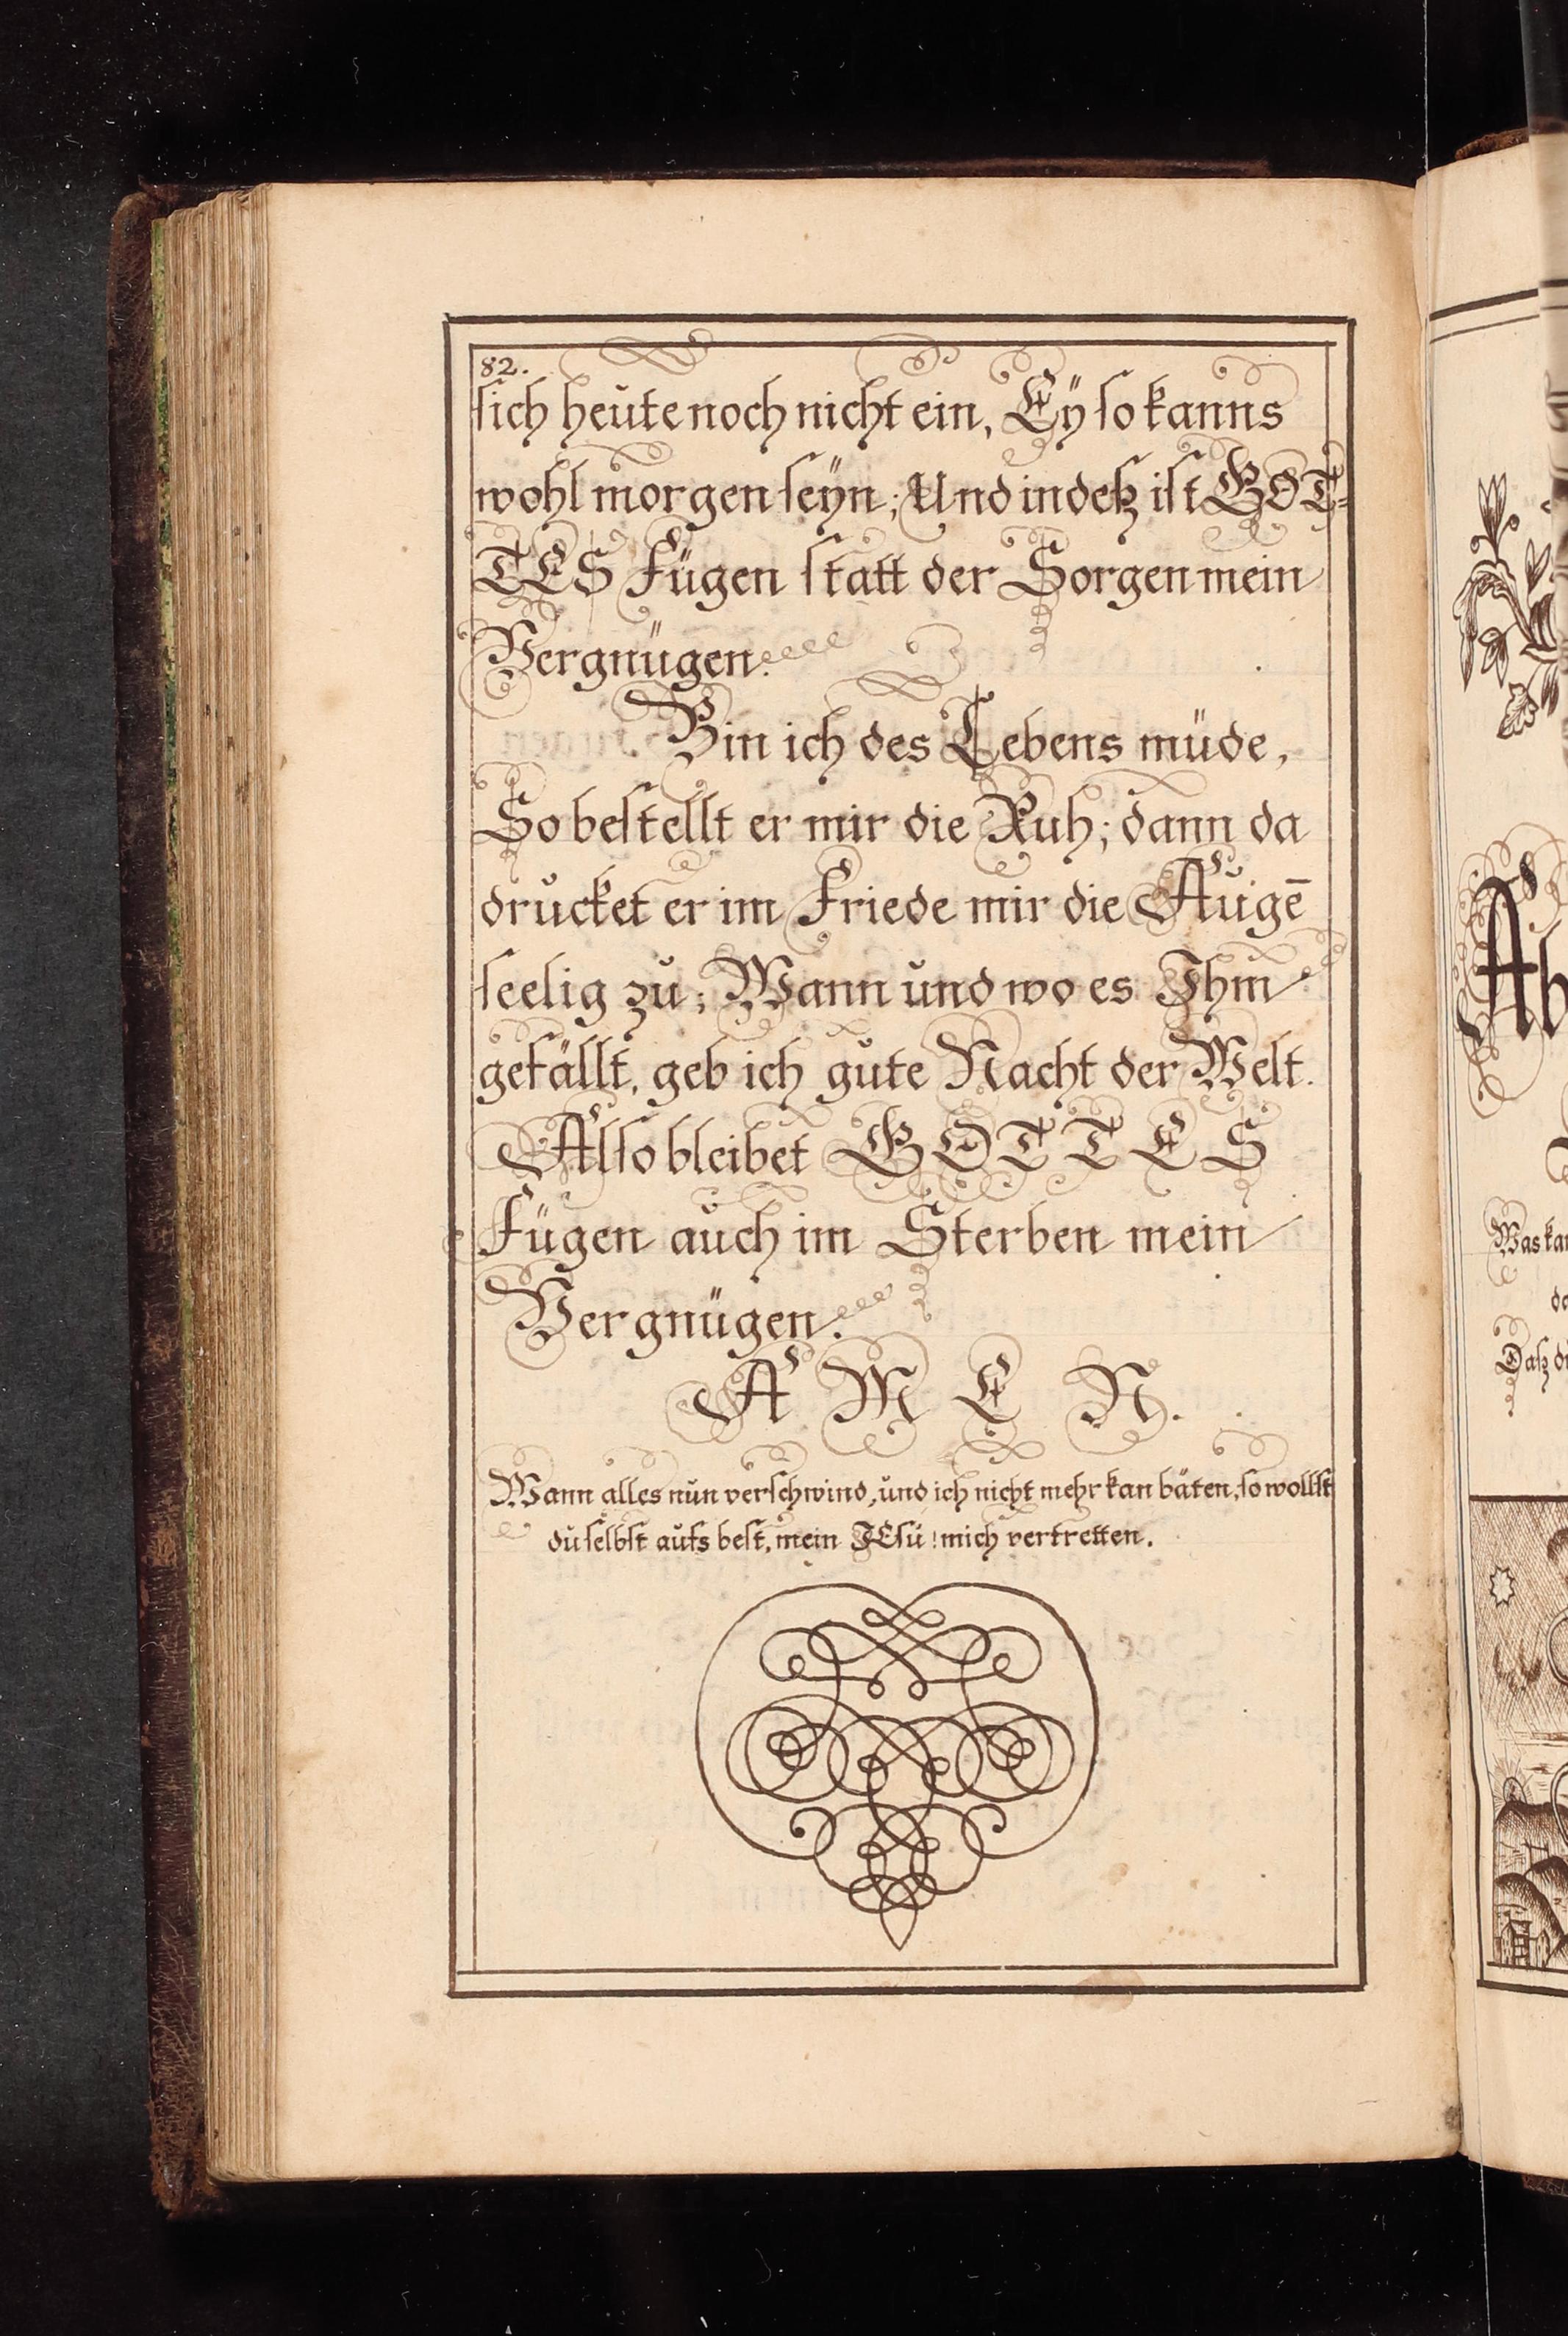 82.
sich heute noch nicht ein, Eÿ so kanns
wohl morgen seÿn; Und indeß ist GOT-
TES Fügen statt der Sorgen mein
Vergnügen.
Bin ich des Lebens müde,
So bestellt er mir die Ruh; dann da
drucket er im Friede mir die Augē
seelig zu; Wann und wo es Ihm
gefällt, geb ich gute Nacht der Welt.
Also bleibet GOTTES
Fügen auch im Sterben mein
Vergnügen.
AMEN.
Wann alles nun verschwind, und ich nicht mehr kan bäten, so wollst
du selbst aufs best, mein JEsu! mich vertretten.
Ab
Was kan
Daß d